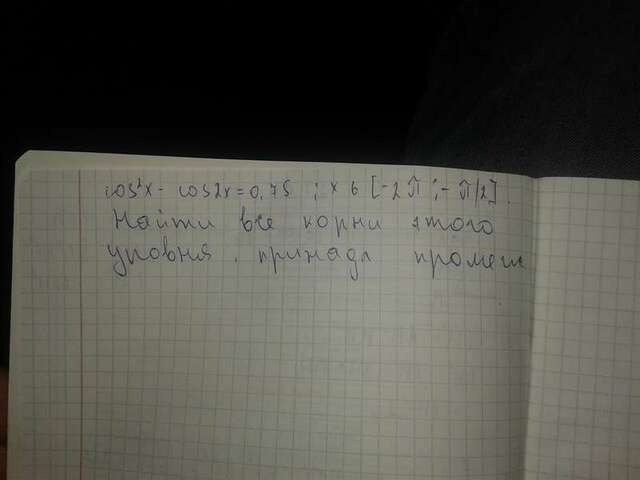 cos²x - cos2x = 0,75 ; x б [-2π ; - π/2] .
Найти все корни этого
уровня . принадл промеж